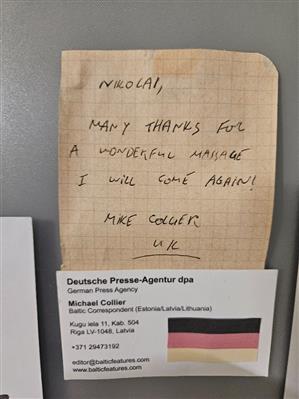 NIKOLAI,
MANY THANKS FOR
A WONDERFUL MASSAGE
I WILL COME AGAIN!
MIKE COLLIER
UK
Deutsche Presse-Agentur dpa
German Press Agency
Michael Collier
Baltic Correspondent (Estonia/Latvia/Lithuania)
Kugu iela 11, Kab. 504
Riga LV-1048, Latvia
+371 29473192
editor@balticfeatures.com
www.balticfeatures.com